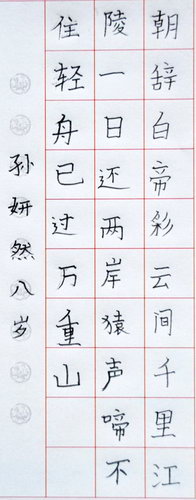 朝辞白帝彩云间千里江
陵一日还两岸猿声啼不
住轻舟已过万重山
孙妍然八岁